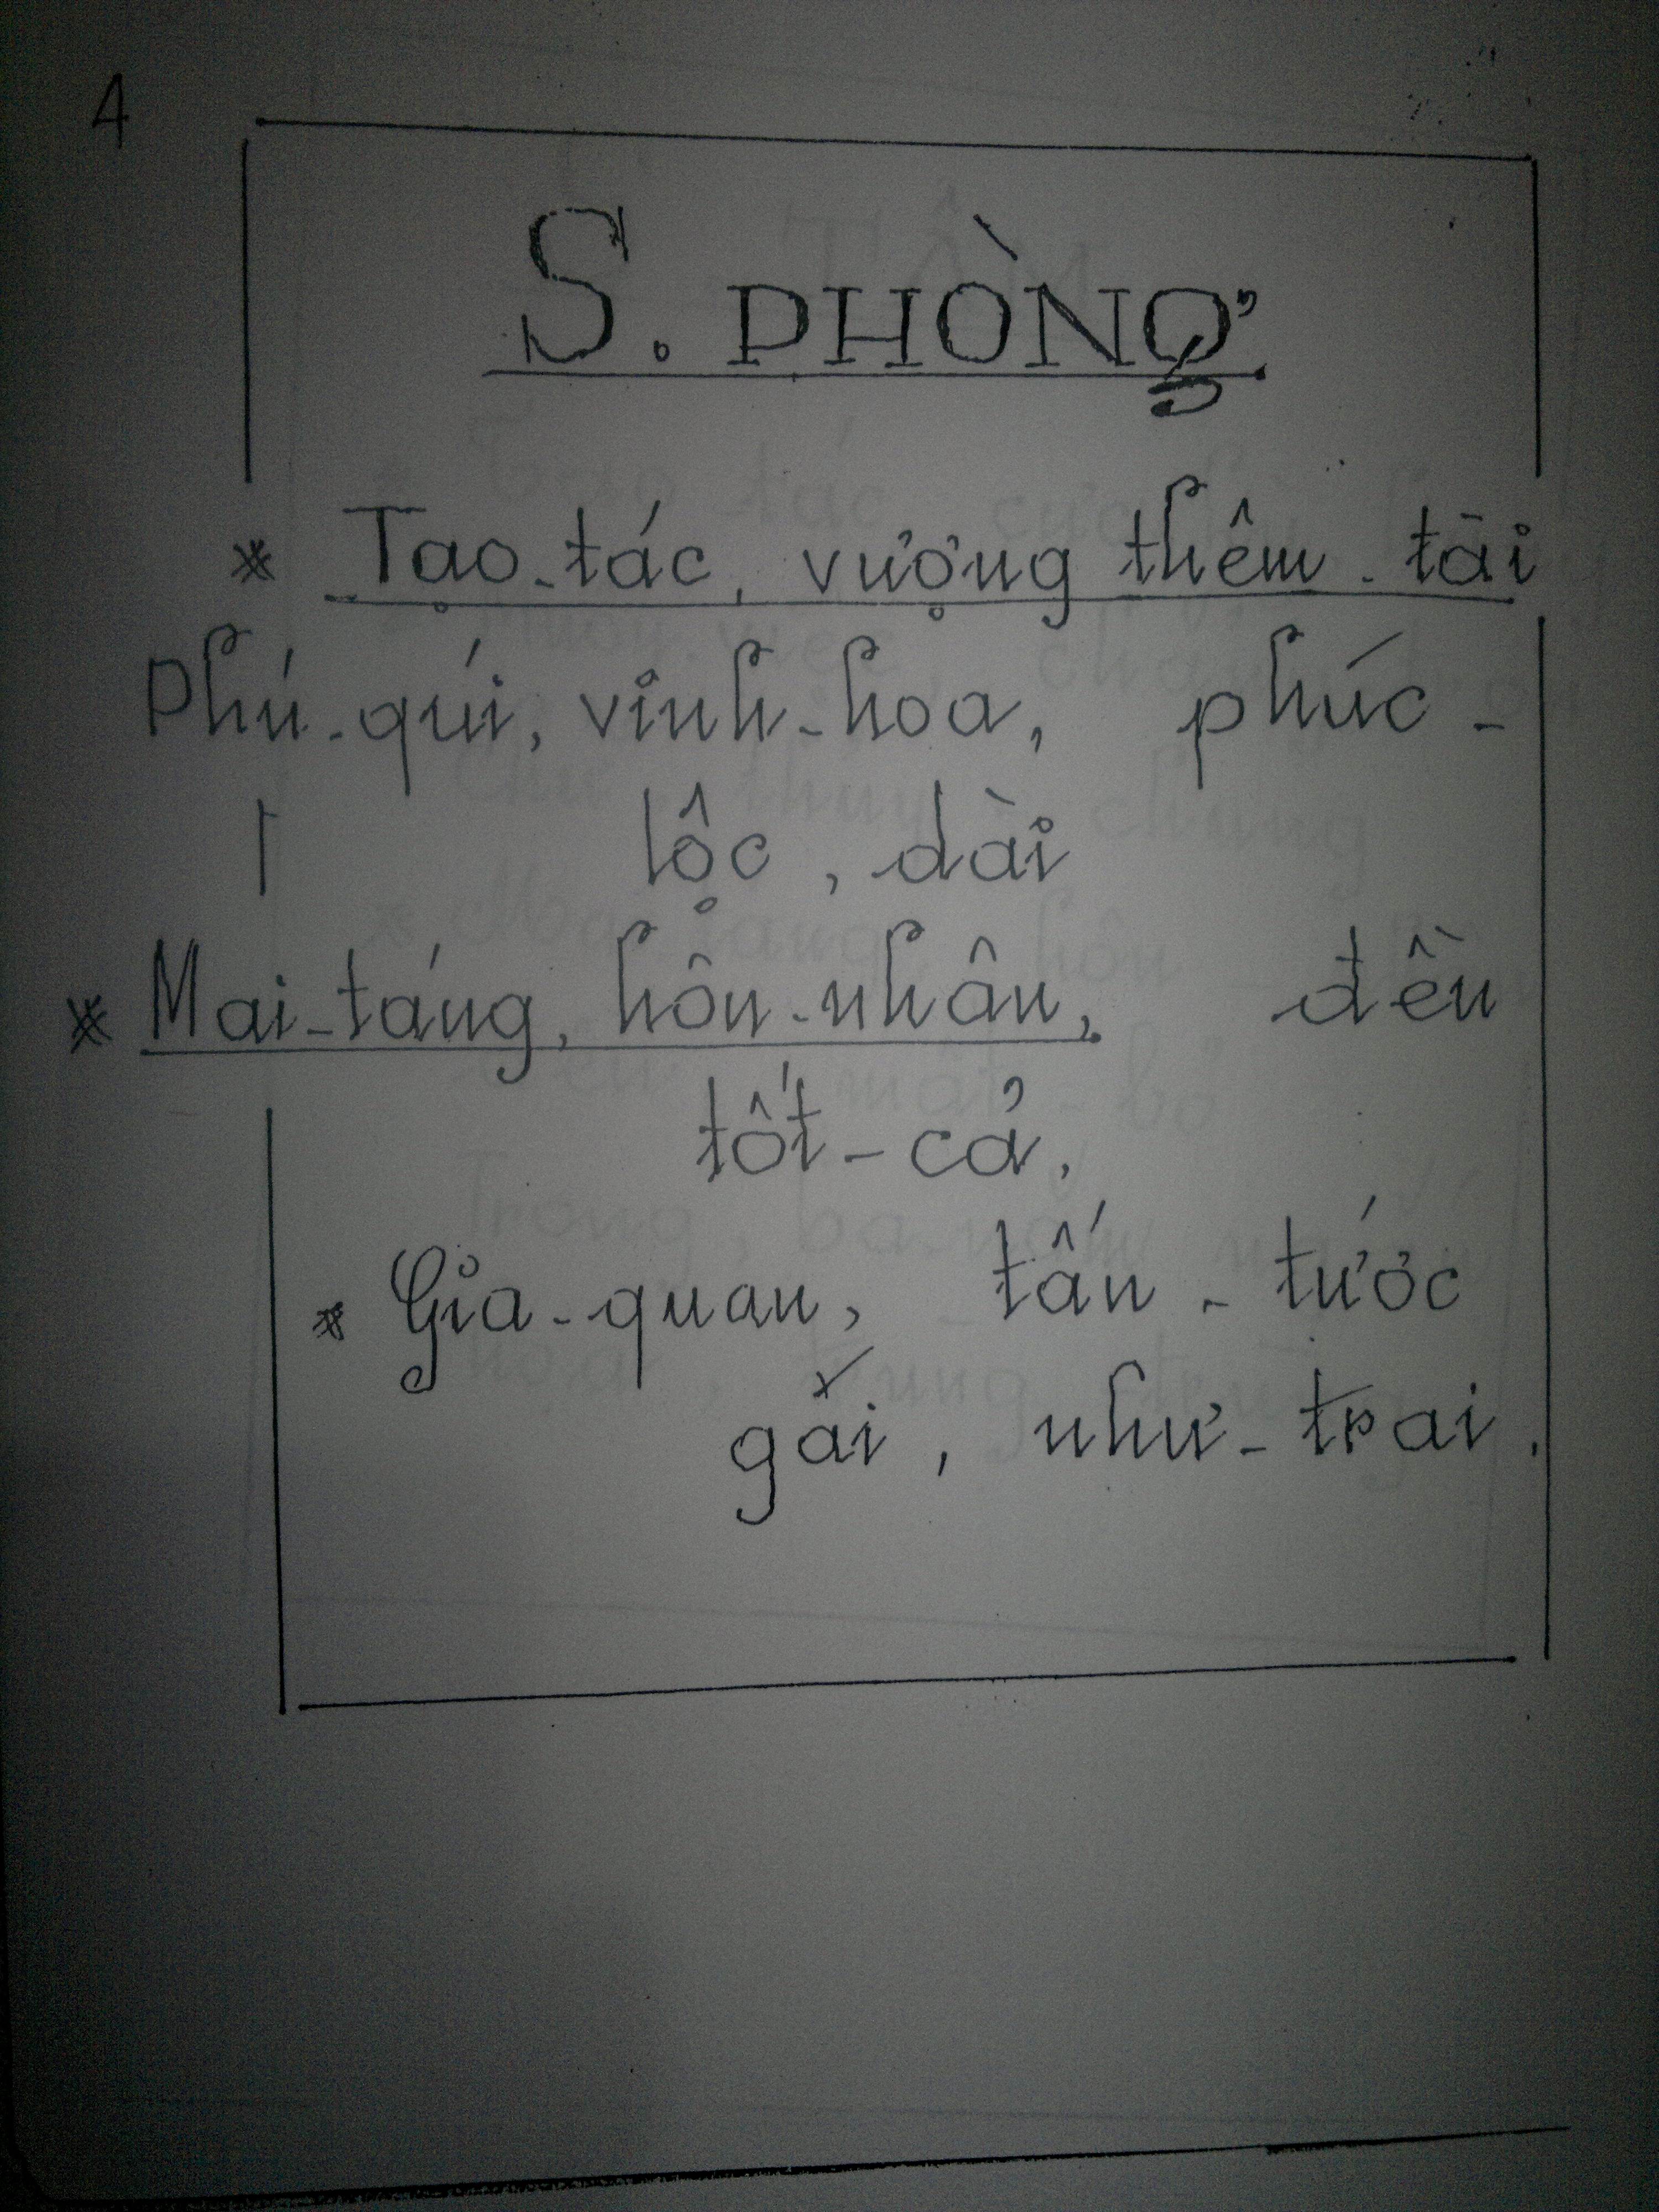 4
S. PHÒNG
* Tạo-tác, vượng thêm-tài
Phú-quí, vinh-hoa, phúc-
lộc, dài
* Mai-táng, hôn-nhân, đền
tốt-cả,
* Gia-quan, tấn-tước
gái, như-trai.